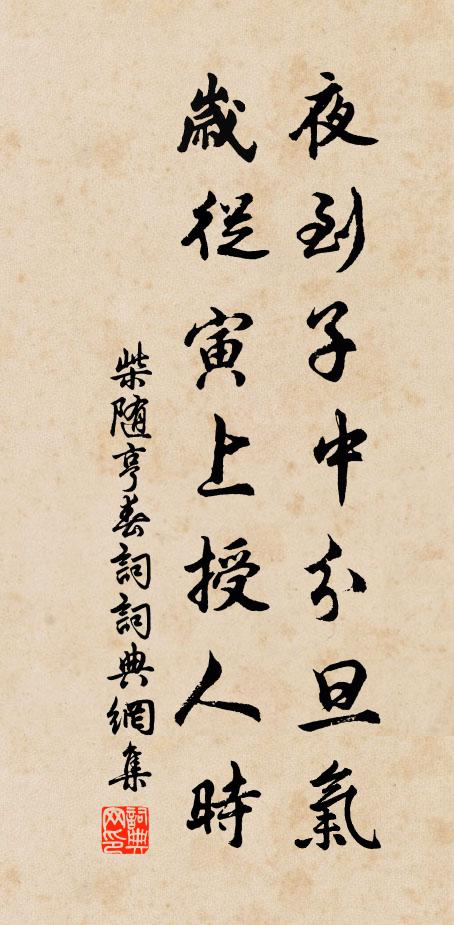 夜到子中分旦氣
歲從寅上授人時
柴随亨春詞詞典網集
詞典网印